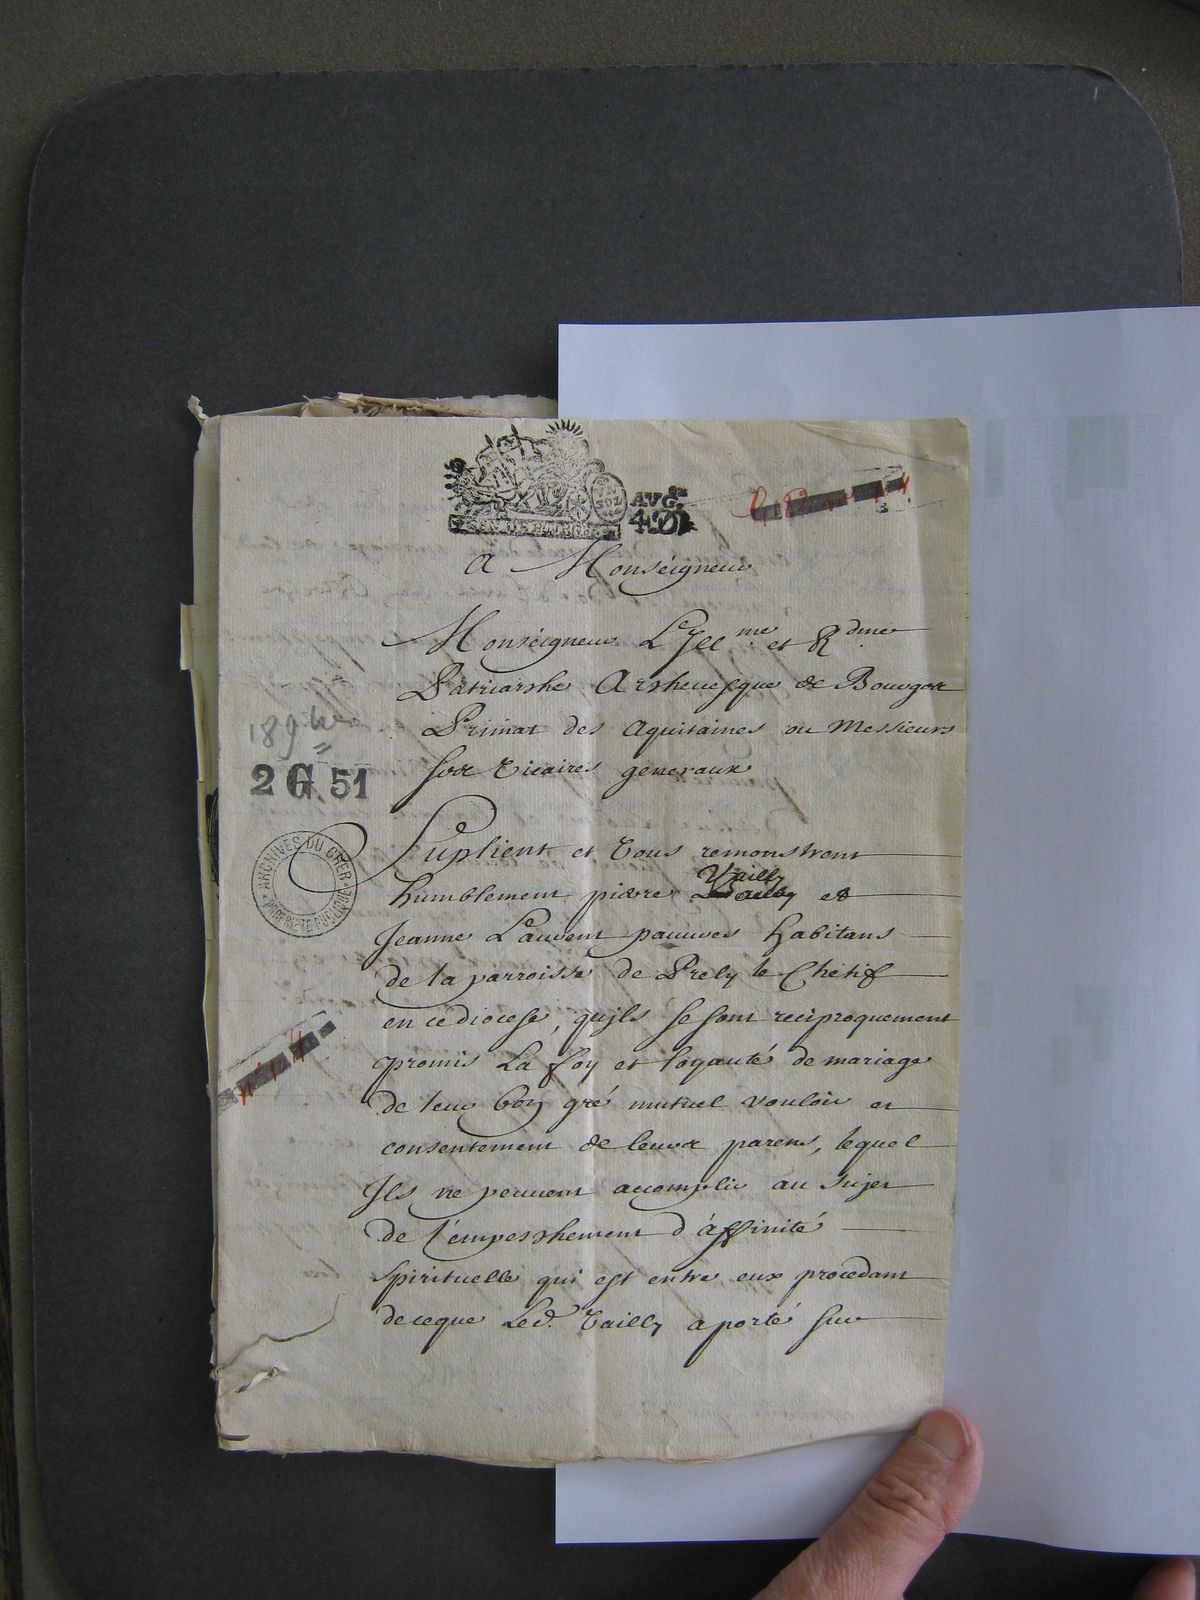 UN SOL
AVG.on
4.D
A Monseigneur
Monseigneur L'Ill.me et R.dme
Patriarshe Arshevesque de Bourges
Primat des Aquitaines ou Messieurs
ses Vicaires generaux
2 G 51
ARCHIVES DU CHER
PROPRIÉTÉ PUBLIQUE
Suplient et Vous remonstrent
humblement pierre Vailly et
Jeanne Lauvent pauuvres habitans
de la parroisse de Prely le Chetif
en ce diocese, qu'ils se sont reciproquement
promis La foy et loyauté de mariage
n° 114
de leur bon gré mutuel vouloir et
consentement de leurs parens, lequel
Ils ne peuuent accomplir au sujet
de l'empeshement d'affinité
Spirituelle qui est entre eux procedant
de ceque Led. Vailly a porté sur